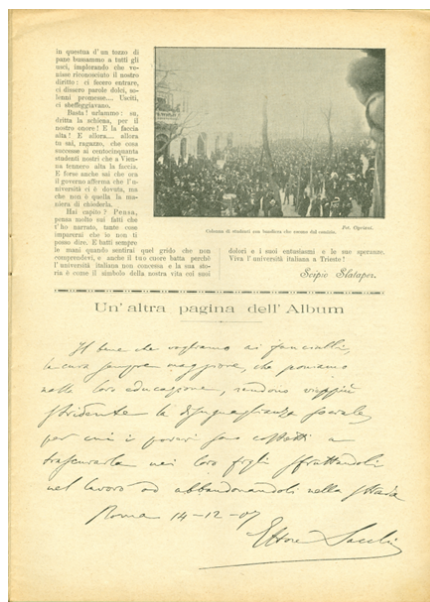 in questua d'un tozzo di
pane bussammo a tutti gli
usci, implorando che ve-
nisse riconosciuto il nostro
diritto: ci fecero entrare,
ci dissero parole dolci, so-
lenni promesse.... Usciti,
ci sbeffeggiavano.
Basta! urlammo: su,
dritta la schiena, per il
nostro onore! E la faccia
alta! E allora.... allora
tu sai, ragazzo, che cosa
successe ai centocinquanta
studenti nostri che a Vien-
na tennero alta la faccia.
E forse anche sai che ora
il governo afferma che l'u-
niversità ci è dovuta, ma
che non è quella la ma-
niera di chiederla.
Hai capito? Pensa,
pensa molto sui fatti che
t'ho narrato, tante cose
imparerai che io non ti
posso dire. E batti sempre
le mani quando sentirai quel grido che non
comprendevi, e anche il tuo cuore batta perchè
l'università italiana non concessa e la sua sto-
ria è come il simbolo della nostra vita coi suoi
Colonna di studenti con bandiera che escono dal comizio.
dolori e i suoi entusiasmi e le sue speranze.
Viva l'università italiana a Trieste!
Scipio Slataper.
Un'altra pagina dell'Album
Il bene che vogliamo ai fanciulli,
la cura sempre maggiore, che poniamo
nella loro educazione, rendono vieppiù
stridente la disuguaglianza sociale,
per cui i poveri sono costretti a
trascurarla nei loro figli sfruttandoli
nel lavoro od abbandonandoli nella strada
Roma 14-12-07
Ettore Sacchi